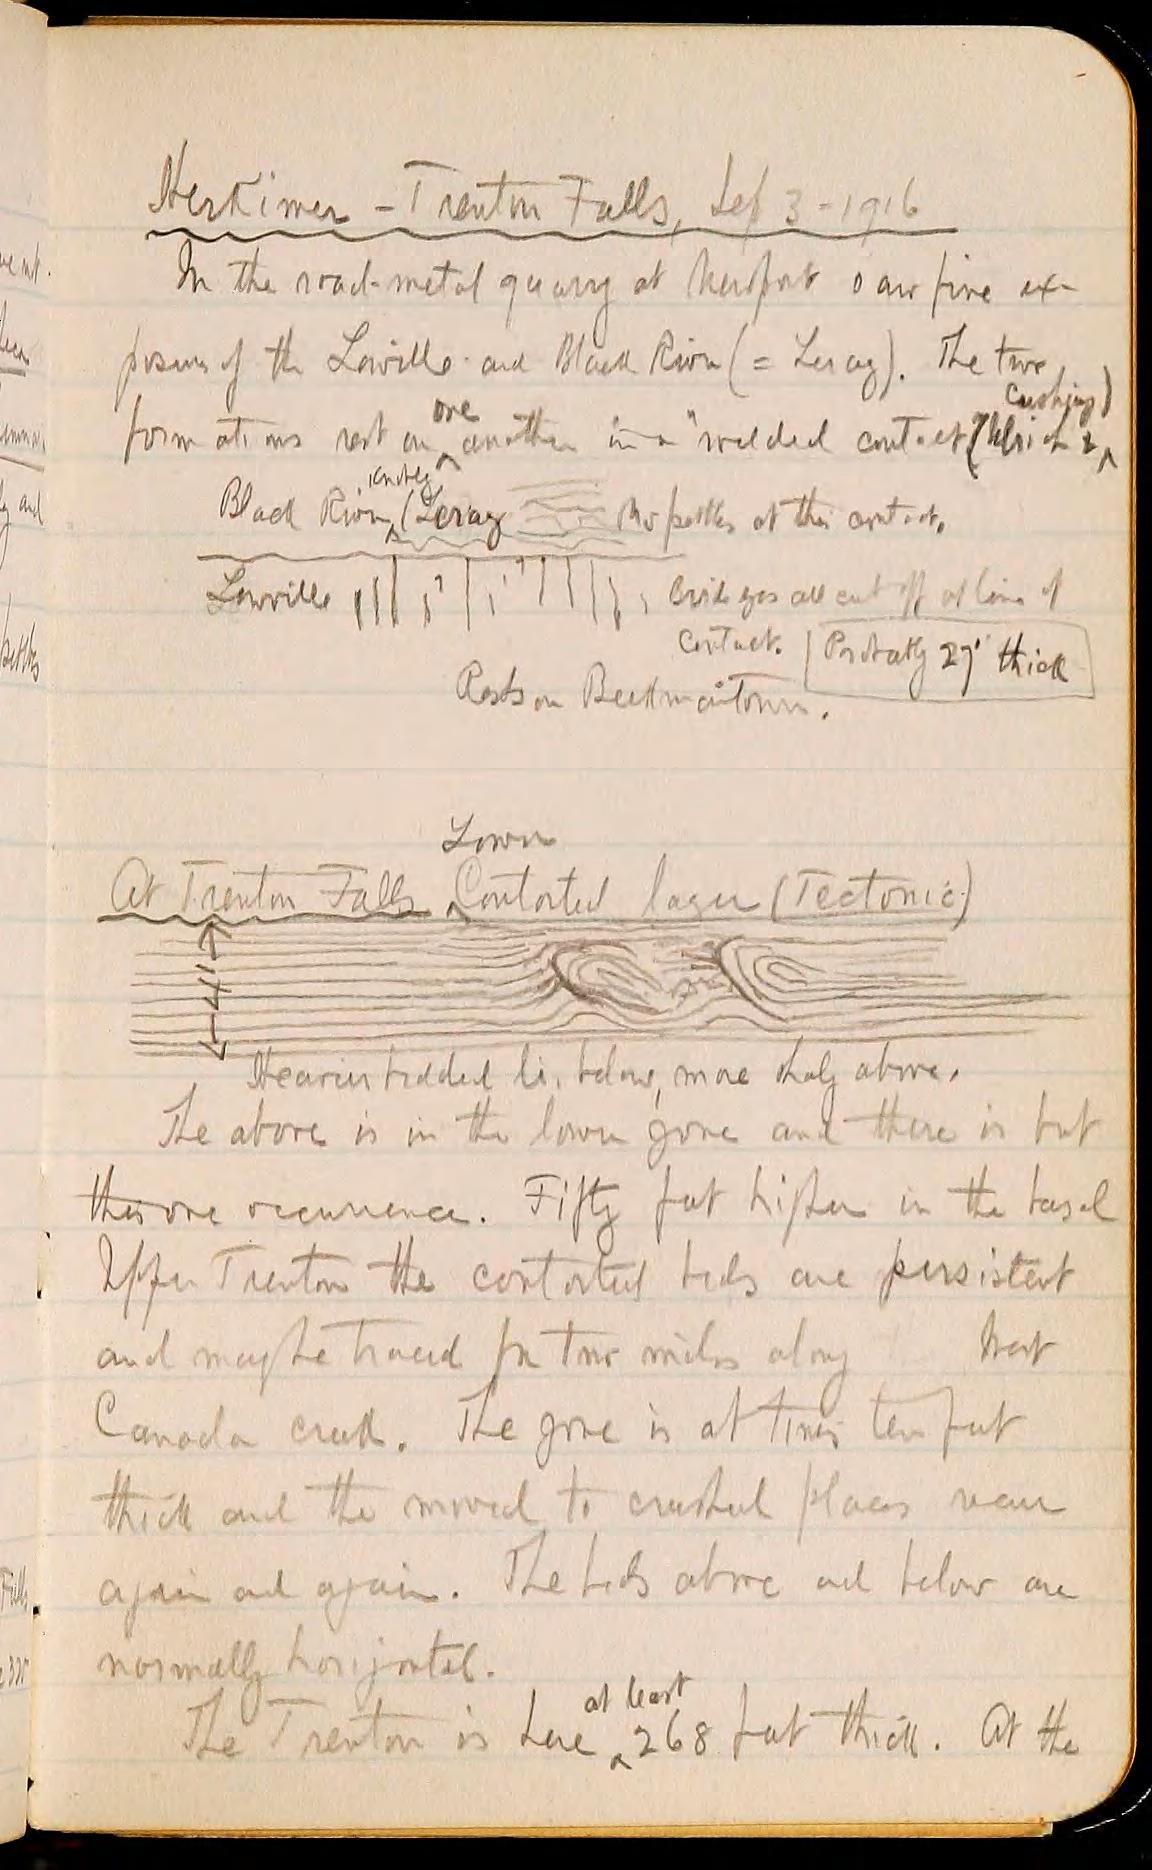 Herkimer - Trenton Falls, Sep 3 - 1916
In the road-metal quarry at Newport saw fine ex-
posures of the Lowville and Black River (= Leray). The two
formations rest on one another in a "welded contact (Ulrich & Cushing)
Black River, knotty (Leray No pebbles at this contact.
Lowville all cut off at line of
contact. Probably 27' thick
Rests on Beekmantown.
Lower
At Trenton Falls Contorted layer (Tectonic)
4'
Heavier bedded ls. below, more shaly above.
The above is in the lower zone and there is but
this one occurrence. Fifty feet higher in the basal
Upper Trenton the contorted beds are persistent
and may be traced for two miles along West
Canada creek. The zone is at times ten feet
thick and the moved to crushed places recur
again and again. The beds above and below are
normally horizontal.
The Trenton is here at least 268 feet thick. At the